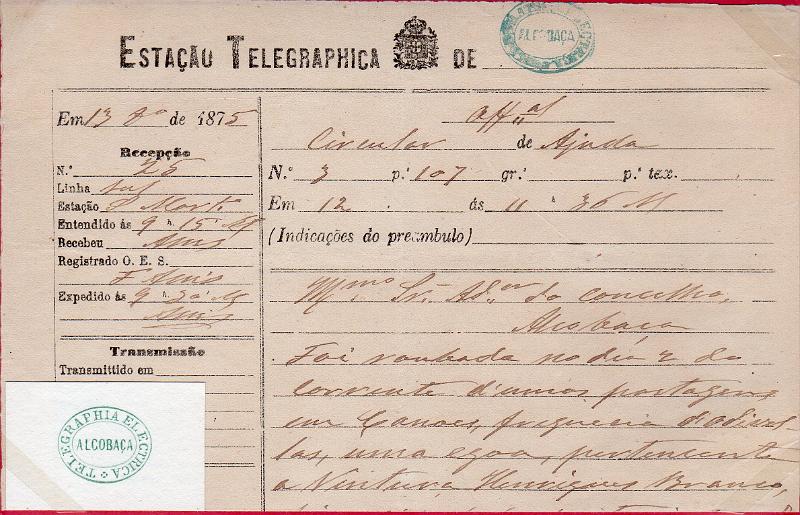 ESTAÇÃO TELEGRAPHICA DE
TELEGRAPHIA ELECTRICA
ALCOBAÇA
Em 13 de 1875
Recepção
N.º 25
Linha Sul
Estação S Mart
Entendido ás 9 h 15 M
Recebeu
Registrado O. E. S.
Expedido ás 9 h 30 M
Transmissão
Transmittido em
TELEGRAPHIA ELECTRICA
ALCOBAÇA
Off al
Circular de Ajuda
N.º 3 p.s 107 gr.s p.s tax.
Em 12 ás 11 h 36 M
(Indicações do preambulo)
Sr. Ad.or do concelho,
Alcobaça
Foi roubada no dia 2 do
corrente d'umas pastagens
em Canoes, freguezia d'Odivel
las, uma egoa, pertencente
a Ventura Henriques Branco,